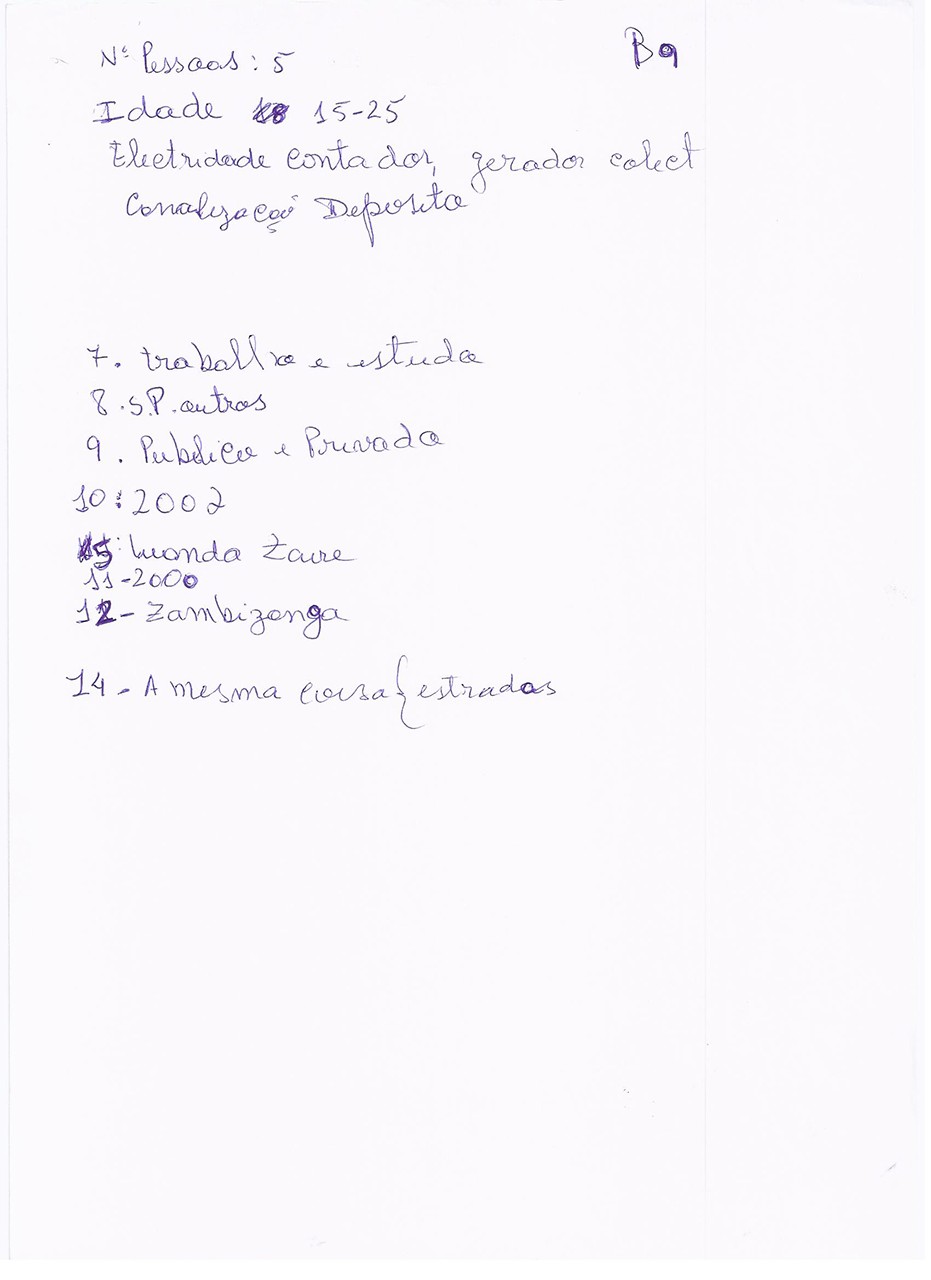 B9
Nº Pessoas: 5
Idade 15-25
Electridade contador, gerador colect
Canalização Deposito
7. trabalho e estuda
8. S.P. outros
9. Publico e Privado
10: 2002
15: Luanda Zaire
11-2000
12- Zambizanga
14- A mesma coisa { estradas